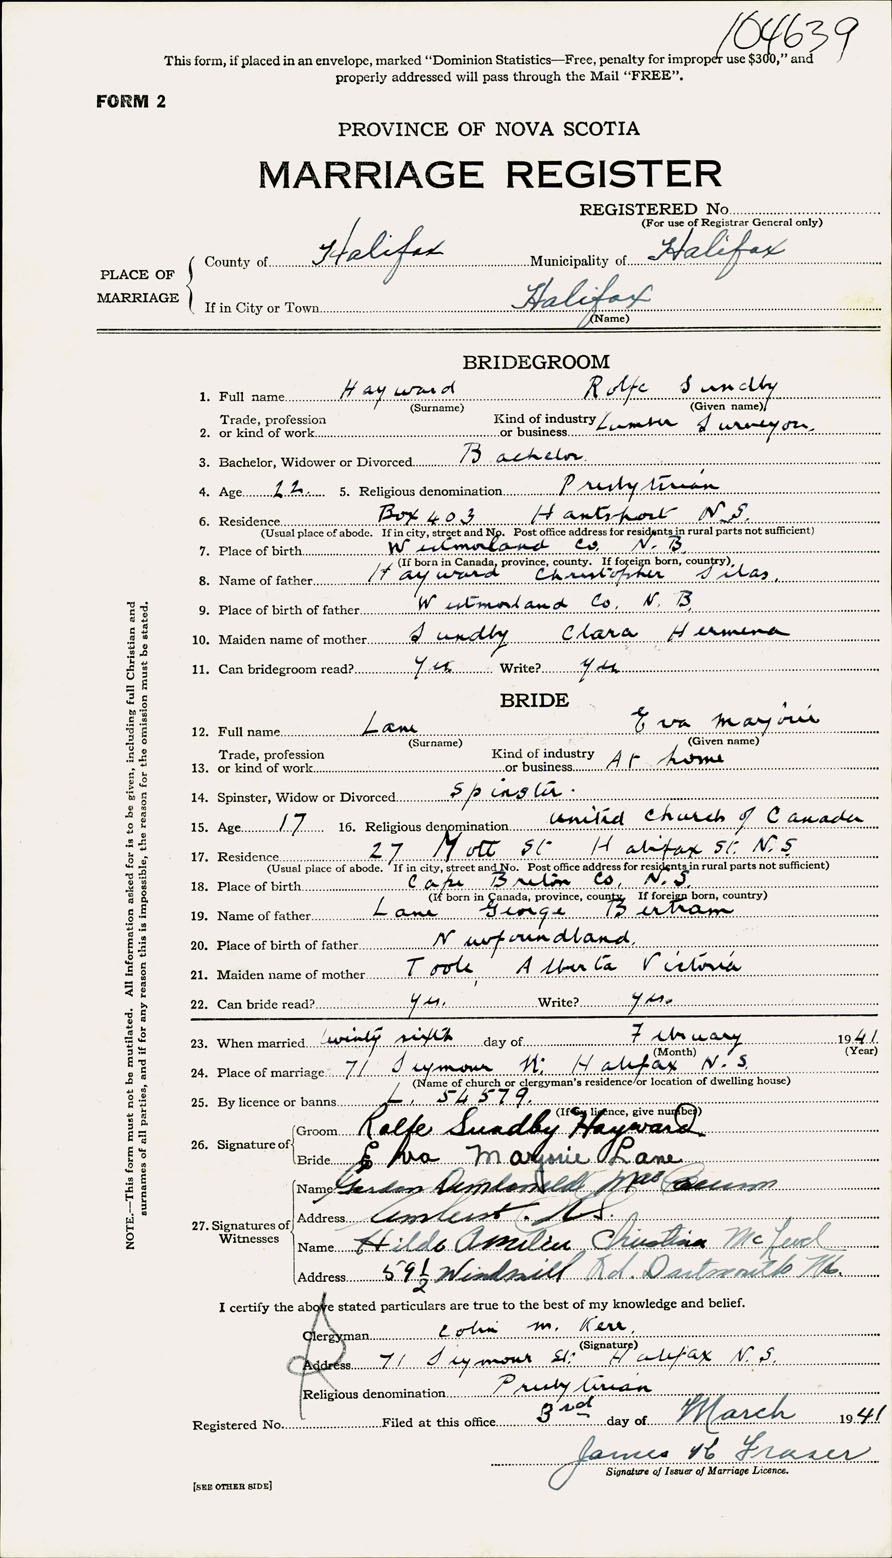 104639
This form, if placed in an envelope, marked “Dominion Statistics—Free, penalty for improper use $300,” and
properly addressed will pass through the Mail “FREE”.
FORM 2
PROVINCE OF NOVA SCOTIA
MARRIAGE REGISTER
REGISTERED No.
(For use of Registrar General only)
PLACE OF MARRIAGE
County of Halifax Municipality of Halifax
If in City or Town Halifax
(Name)
BRIDEGROOM
1. Full name Hayward Rolfe Sundby
(Surname) (Given name)
2. Trade, profession or kind of work Kind of industry or business Lumber Surveyor.
3. Bachelor, Widower or Divorced Bachelor.
4. Age 22 5. Religious denomination Presbyterian
6. Residence Box 403 Hantsport N.S.
(Usual place of abode. If in city, street and No. Post office address for residents in rural parts not sufficient)
7. Place of birth Westmorland Co. N. B.
(If born in Canada, province, county. If foreign born, country)
8. Name of father Hayward Christopher Silas.
9. Place of birth of father Westmorland Co. N. B.
10. Maiden name of mother Sundby Clara Hermena
11. Can bridegroom read? Yes Write? Yes
BRIDE
12. Full name Lane Eva Marjorie
(Surname) (Given name)
13. Trade, profession or kind of work Kind of industry or business At home
14. Spinster, Widow or Divorced Spinster.
15. Age 17 16. Religious denomination United Church of Canada
17. Residence 27 Mott St Halifax St. N.S
(Usual place of abode. If in city, street and No. Post office address for residents in rural parts not sufficient)
18. Place of birth Cape Breton Co. N.S.
(If born in Canada, province, county. If foreign born, country)
19. Name of father Lane George Bertram
20. Place of birth of father Newfoundland.
21. Maiden name of mother Toole, Alberta Victoria
22. Can bride read? Yes. Write? Yes.
23. When married twenty sixth day of February 1941
(Month) (Year)
24. Place of marriage 71 Seymour St. Halifax N.S.
(Name of church or clergyman's residence or location of dwelling house)
25. By licence or banns L. 54579.
(If by licence, give number)
26. Signature of
Groom Rolfe Sundby Hayward
Bride Eva Marjorie Lane
27. Signatures of Witnesses
Name Gordon
Address Amherst. N.S.
Name Hilda Christina McLeod
Address 59½ Windmill Rd. Dartmouth N.S.
I certify the above stated particulars are true to the best of my knowledge and belief.
Clergyman Colin M. Kerr.
(Signature)
Address 71 Seymour St. Halifax N.S.
Religious denomination Presbyterian
Registered No. Filed at this office 3rd day of March 1941
James H Fraser
Signature of Issuer of Marriage Licence.
[SEE OTHER SIDE]
NOTE.—This form must not be mutilated. All Information asked for is to be given, including full Christian and
surnames of all parties, and if for any reason this is impossible, the reason for the omission must be stated.